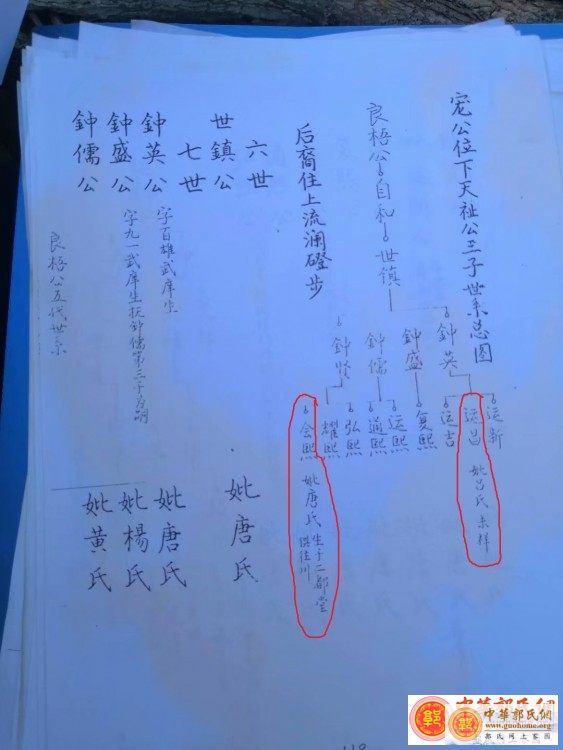 宠公位下天祉公三子世系总图
良梧公 自和 世镇
鈡英
鈡盛
鈡儒
鈡賢
运新
运昌 妣吕氏 未祥
运吉
复熙
运熙
通熙
弘熙
耀熙
会熙 妣唐氏 生于二都堂
俱往川
后裔住上流澜磴步
六世
世鎮公 妣唐氏
七世
鈡英公 字百雄武庠生 妣唐氏
鈡盛公 字九一武庠生抚鈡儒第三子为嗣 妣楊氏
鈡儒公 妣黄氏
良梧公五代世系
118
中華郭氏網
中華郭氏網
www.guohome.org
郭氏网上家园